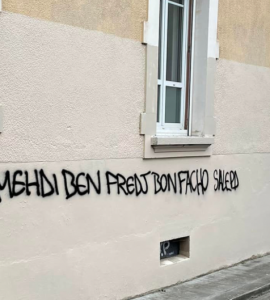 MEHDI BEN FREDJ BON FACHO SALERD